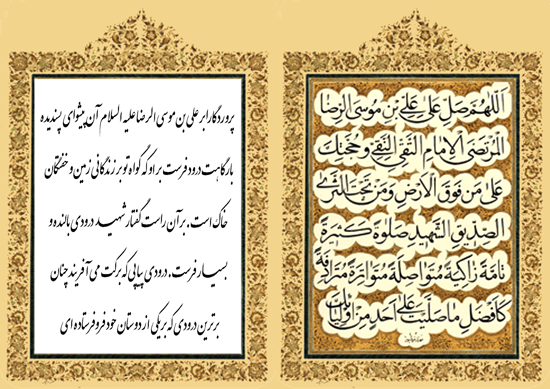 اَللّهُمَّ صَلِّ عَلى عَلِيِّ بْنِ مُوسَى الرِّضَا
الْمُرْتَضَى الْاِمامِ التَّقِيِّ النَّقِيِّ وَ حُجَّتِكَ
عَلى مَنْ فَوْقَ الْاَرْضِ وَ مَنْ تَحْتَ الثَّرى
الصِّدّيقِ الشَّهيدِ صَلوةً كَثيرَةً
تامَّةً زاكِيَةً مُتَواصِلَةً مُتَواتِرَةً مُتَرادِفَةً
كَاَفْضَلِ ما صَلَّيْتَ عَلى اَحَدٍ مِنْ اَوْلِيائِكَ
پروردگارا بر علی بن موسی الرضا علیه السلام آن پیشوای پسندیده
بارگاهت درود فرست بر او که گواه تو بر زندگانی زمین و خفتگان
خاک است. بر آن راست گفتار شهید درودی بالنده و
بسیار فرست. درودی پیاپی که برکت می آفریند چنان
برترین درودی که بر یکی از دوستان خود فرو فرستاده ای